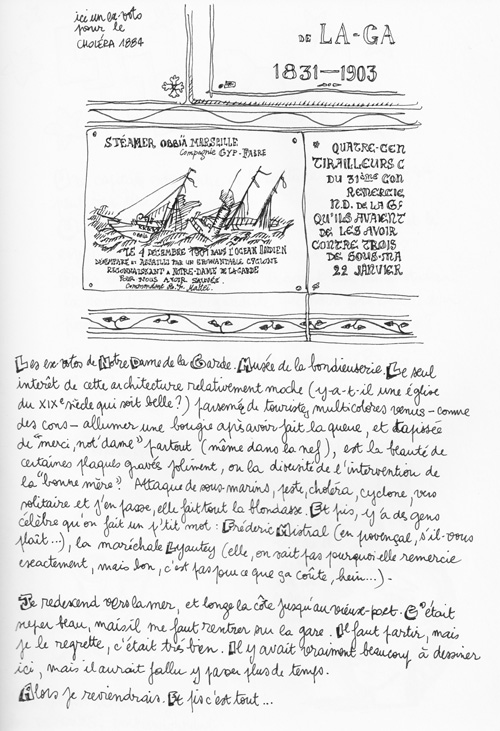 ici un ex-voto
pour le
CHOLÉRA 1884
DE LA-GA
1831—1903
STÉAMER OBBIA MARSEILLE
Compagnie CYP-FABRE
LE 4 DECEMBRE 1901 DANS L'OCEAN INDIEN
DÉMÂTARE et ASSAILLI PAR UN EPOUVANTABLE CYCLONE
RECONNAISSANT À NOTRE-DAME DE LA GARDE
POUR NOUS AVOIR SAUVÉS
Commandant
QUATRE-CEN
TIRAILLEURS C
DU 31ème CON
REMERCIE
N.D. DE LA GF
QU'ILS AVAIENT
DE LES AVOIR
CONTRE TROIS
DE SOUS-MA
22 JANVIER
Les ex-votos de Notre Dame de la Garde. Musée de la bondieuserie. Le seul
intérêt de cette architecture relativement moche (y-a-t-il une église
du XIXe siècle qui soit belle?) parsemée de touristes multicolores venus - comme
des cons - allumer une bougie après avoir fait la queue, et tapissée
de "merci, not'dame" partout (même dans la nef), est la beauté de
certaines plaques gravées joliment, ou la diversité de l'intervention de
la "bonne mère". Attaque de sous-marins, peste, choléra, cyclone, vers
solitaire et j'en passe, elle fait tout la blondasse. Et pis, y'a des gens
célèbre qu'on fait un p'tit mot : Frédéric Mistral (en provençal, s'il-vous
plaît...), la maréchale Lyautey (elle, on sait pas pourquoi elle remercie
exactement, mais bon, c'est pas pour ce que ça coûte, hein...) -
Je redescend vers la mer, et longe la côte jusqu'au vieux-port. C'était
super beau, mais il me faut rentrer sur la gare. Il faut partir, mais
je le regrette, c'était très bien. Il y avait vraiment beaucoup à dessiner
ici, mais il aurait fallu y passer plus de temps.
Alors je reviendrais. Et pis c'est tout...